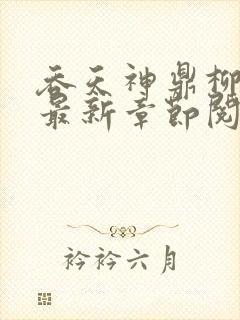 吞天神鼎柳
最新章节阅
衿衿六月